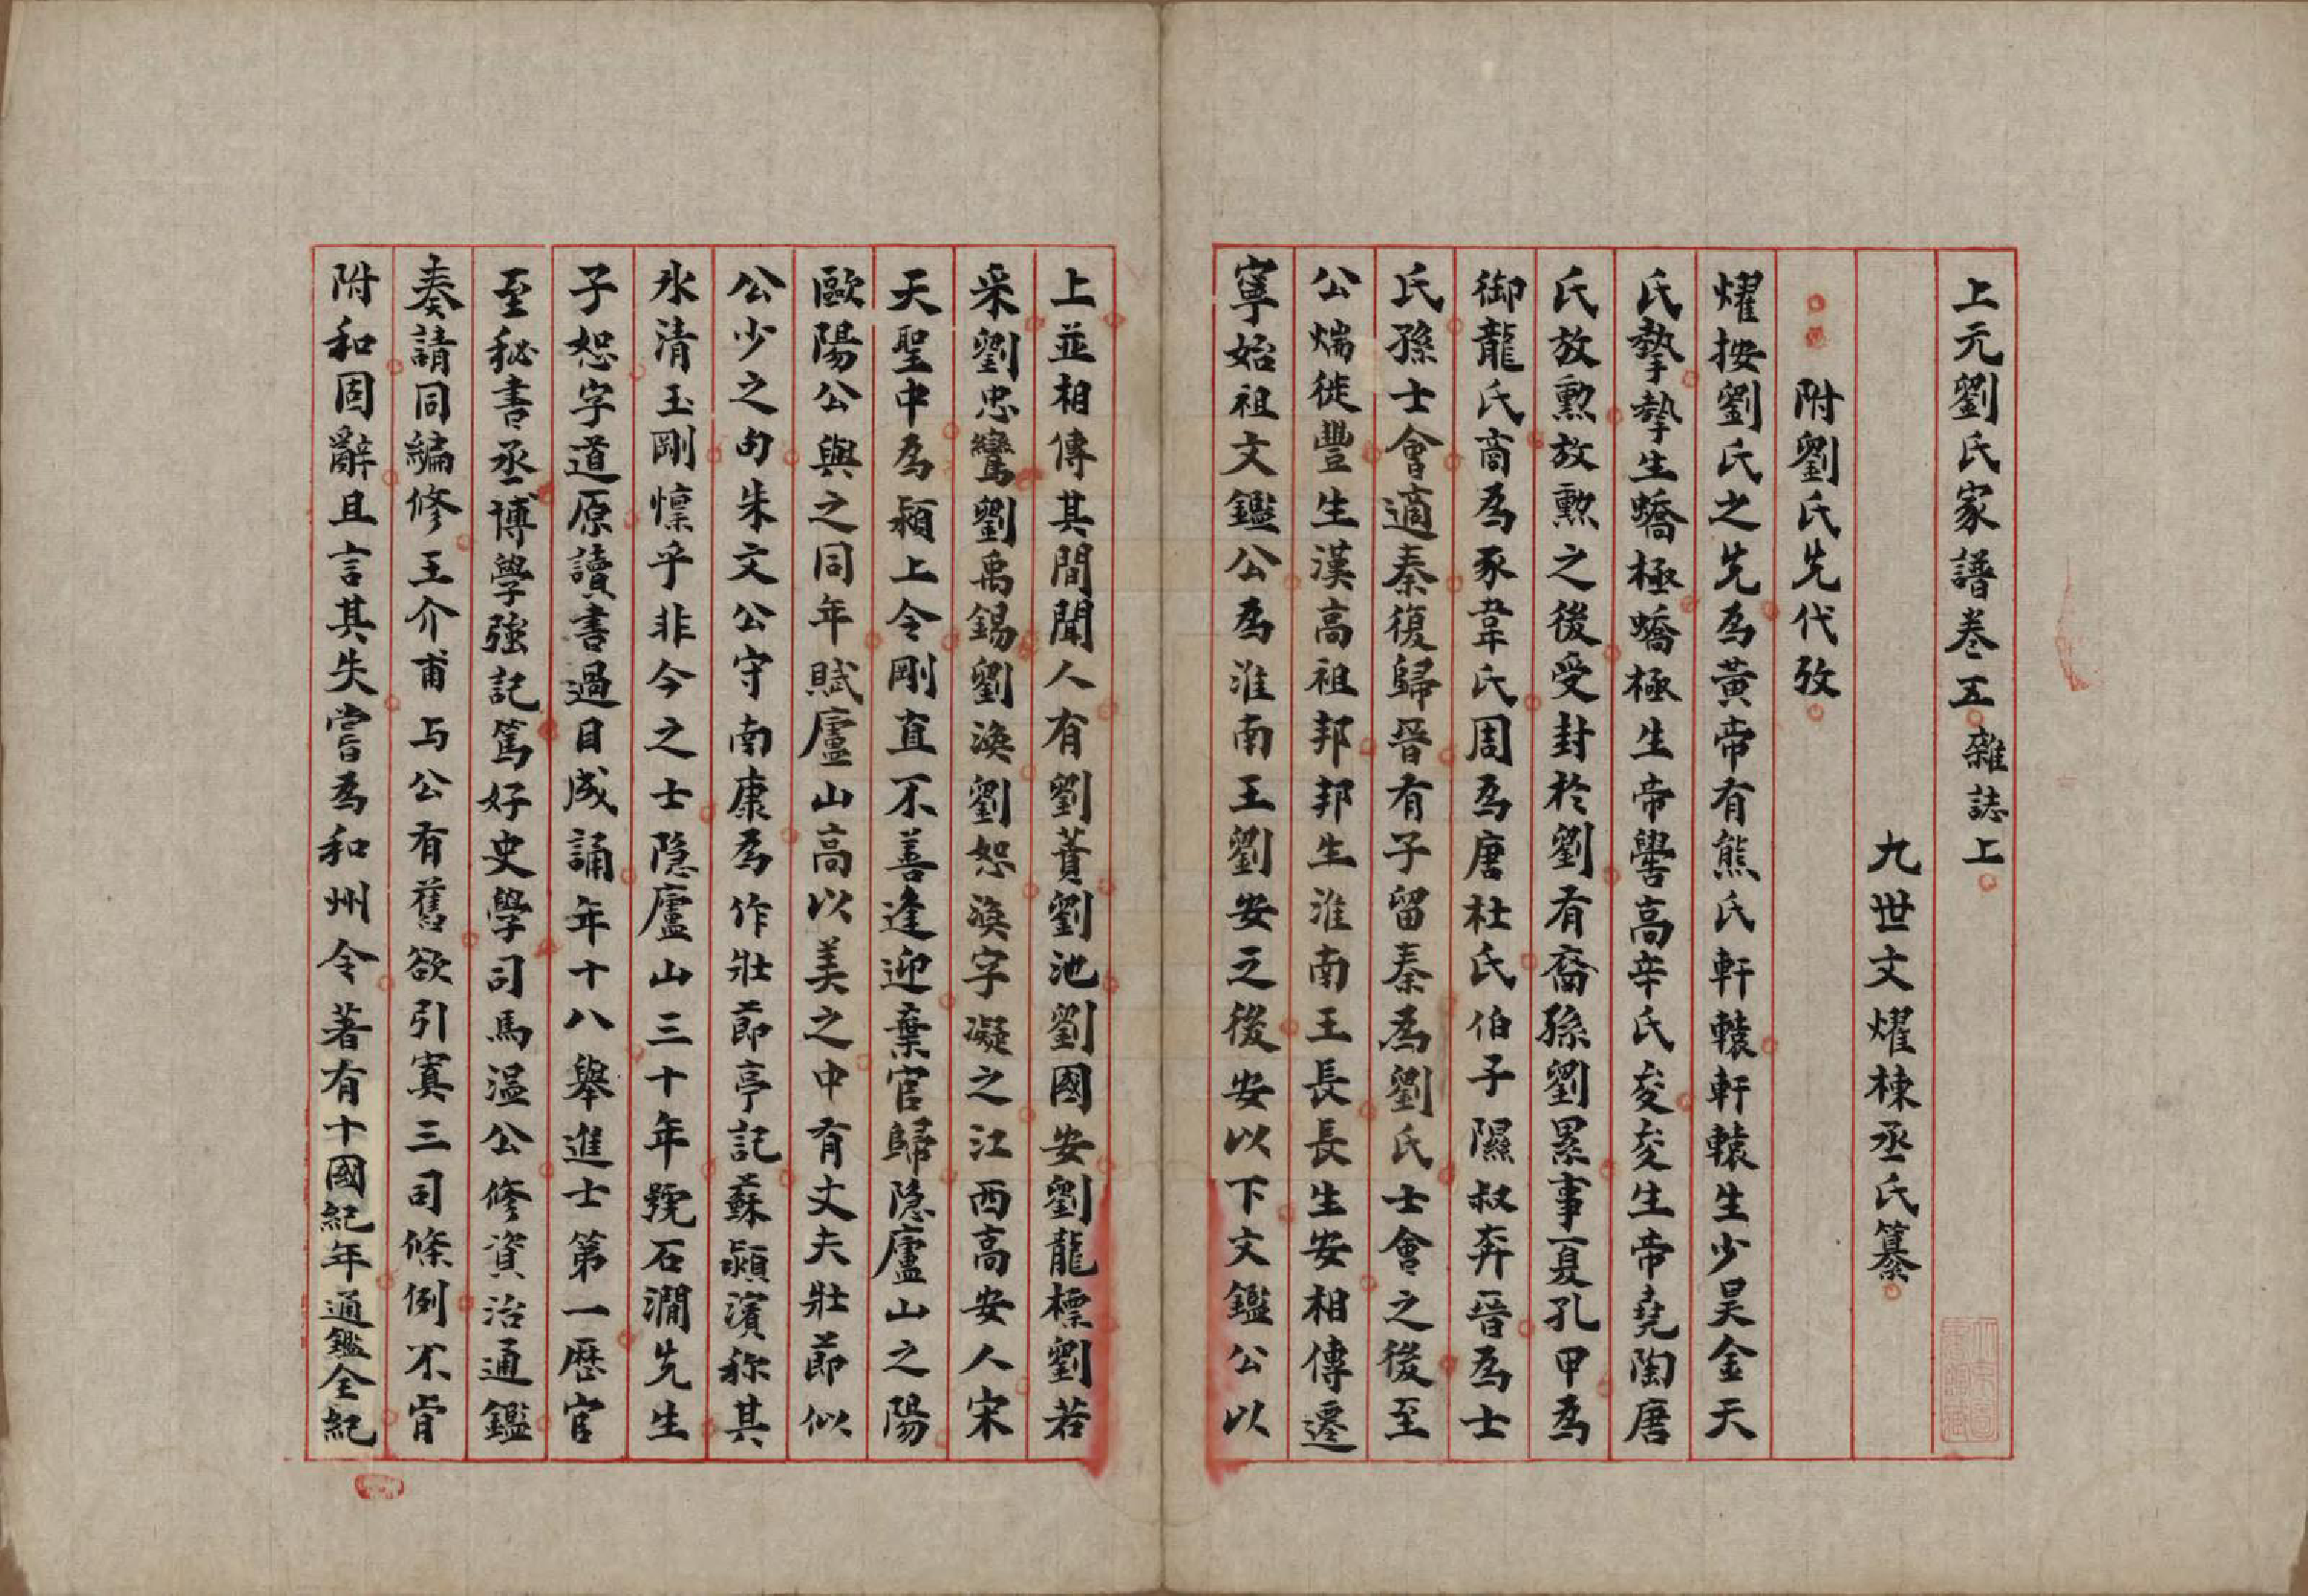 上元劉氏家譜卷五雜誌上
九世文燿棟丞氏纂
附劉氏先代攷
燿按劉氏之先為黃帝有熊氏軒轅軒轅生少昊金天
氏摯摯生蟜極蟜極生帝嚳高辛氏夋夋生帝堯陶唐
氏放勲放勲之後受封於劉有裔孫劉累事夏孔甲為
御龍氏商為豕韋氏周為唐杜氏伯子隰叔奔晉為士
氏孫士會適秦復歸晉有子留秦為劉氏士會之後至
公煓徙豐生漢高祖邦邦生淮南王長長生安相傳遷
寧始祖文鑑公為淮南王劉安之後安以下文鑑公以
上並相傳其間聞人有劉蕡劉池劉國安劉龍標劉若
采劉忠鸞劉禹錫劉渙劉恕渙字凝之江西高安人宋
天聖中為潁上令剛直不善逢迎棄官歸隐廬山之陽
歐陽公與之同年賦廬山高以美之中有丈夫壯節似
公少之句朱文公守南康為作壯節亭記蘇潁濱称其
氷清玉剛懍乎非今之士隐廬山三十年號石澗先生
子恕字道原讀書過目成誦年十八舉進士第一歴官
至秘書丞博學强記篤好史學司馬温公修資治通鑑
奏請同編修王介甫与公有舊欲引寘三司條例不肯
附和固辭且言其失嘗為和州令著有十國紀年通鑑全紀